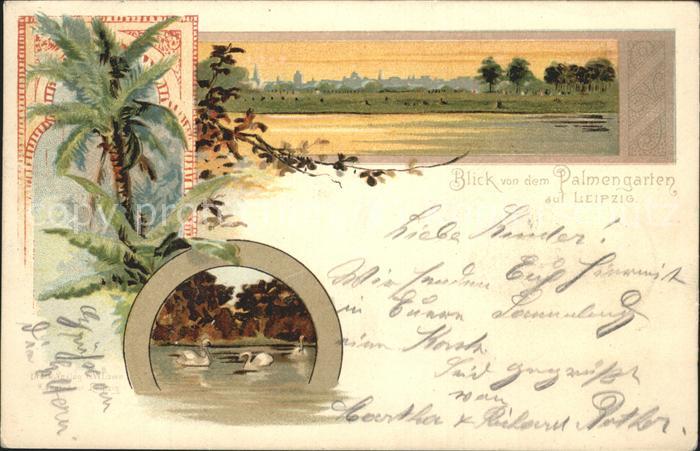 Blick von dem Palmengarten
auf LEIPZIG.
Liebe Kinder!
Wir senden Euch hiermit
in Eurer Sammlung
eine Karte
Seid gegrüßt
von
Martha & Richard Rother.
Grüße an
die Eltern